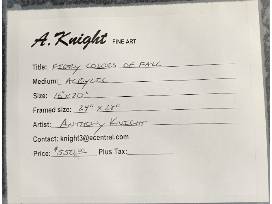 A. Knight FINE ART
Title: FIERY COLORS OF FALL
Medium: ACRYLIC
Size: 16"x20"
Framed size: 24" x 28"
Artist: ANTHONY KNIGHT
Contact: knight3@ecentral.com
Price: $550.00 Plus Tax: